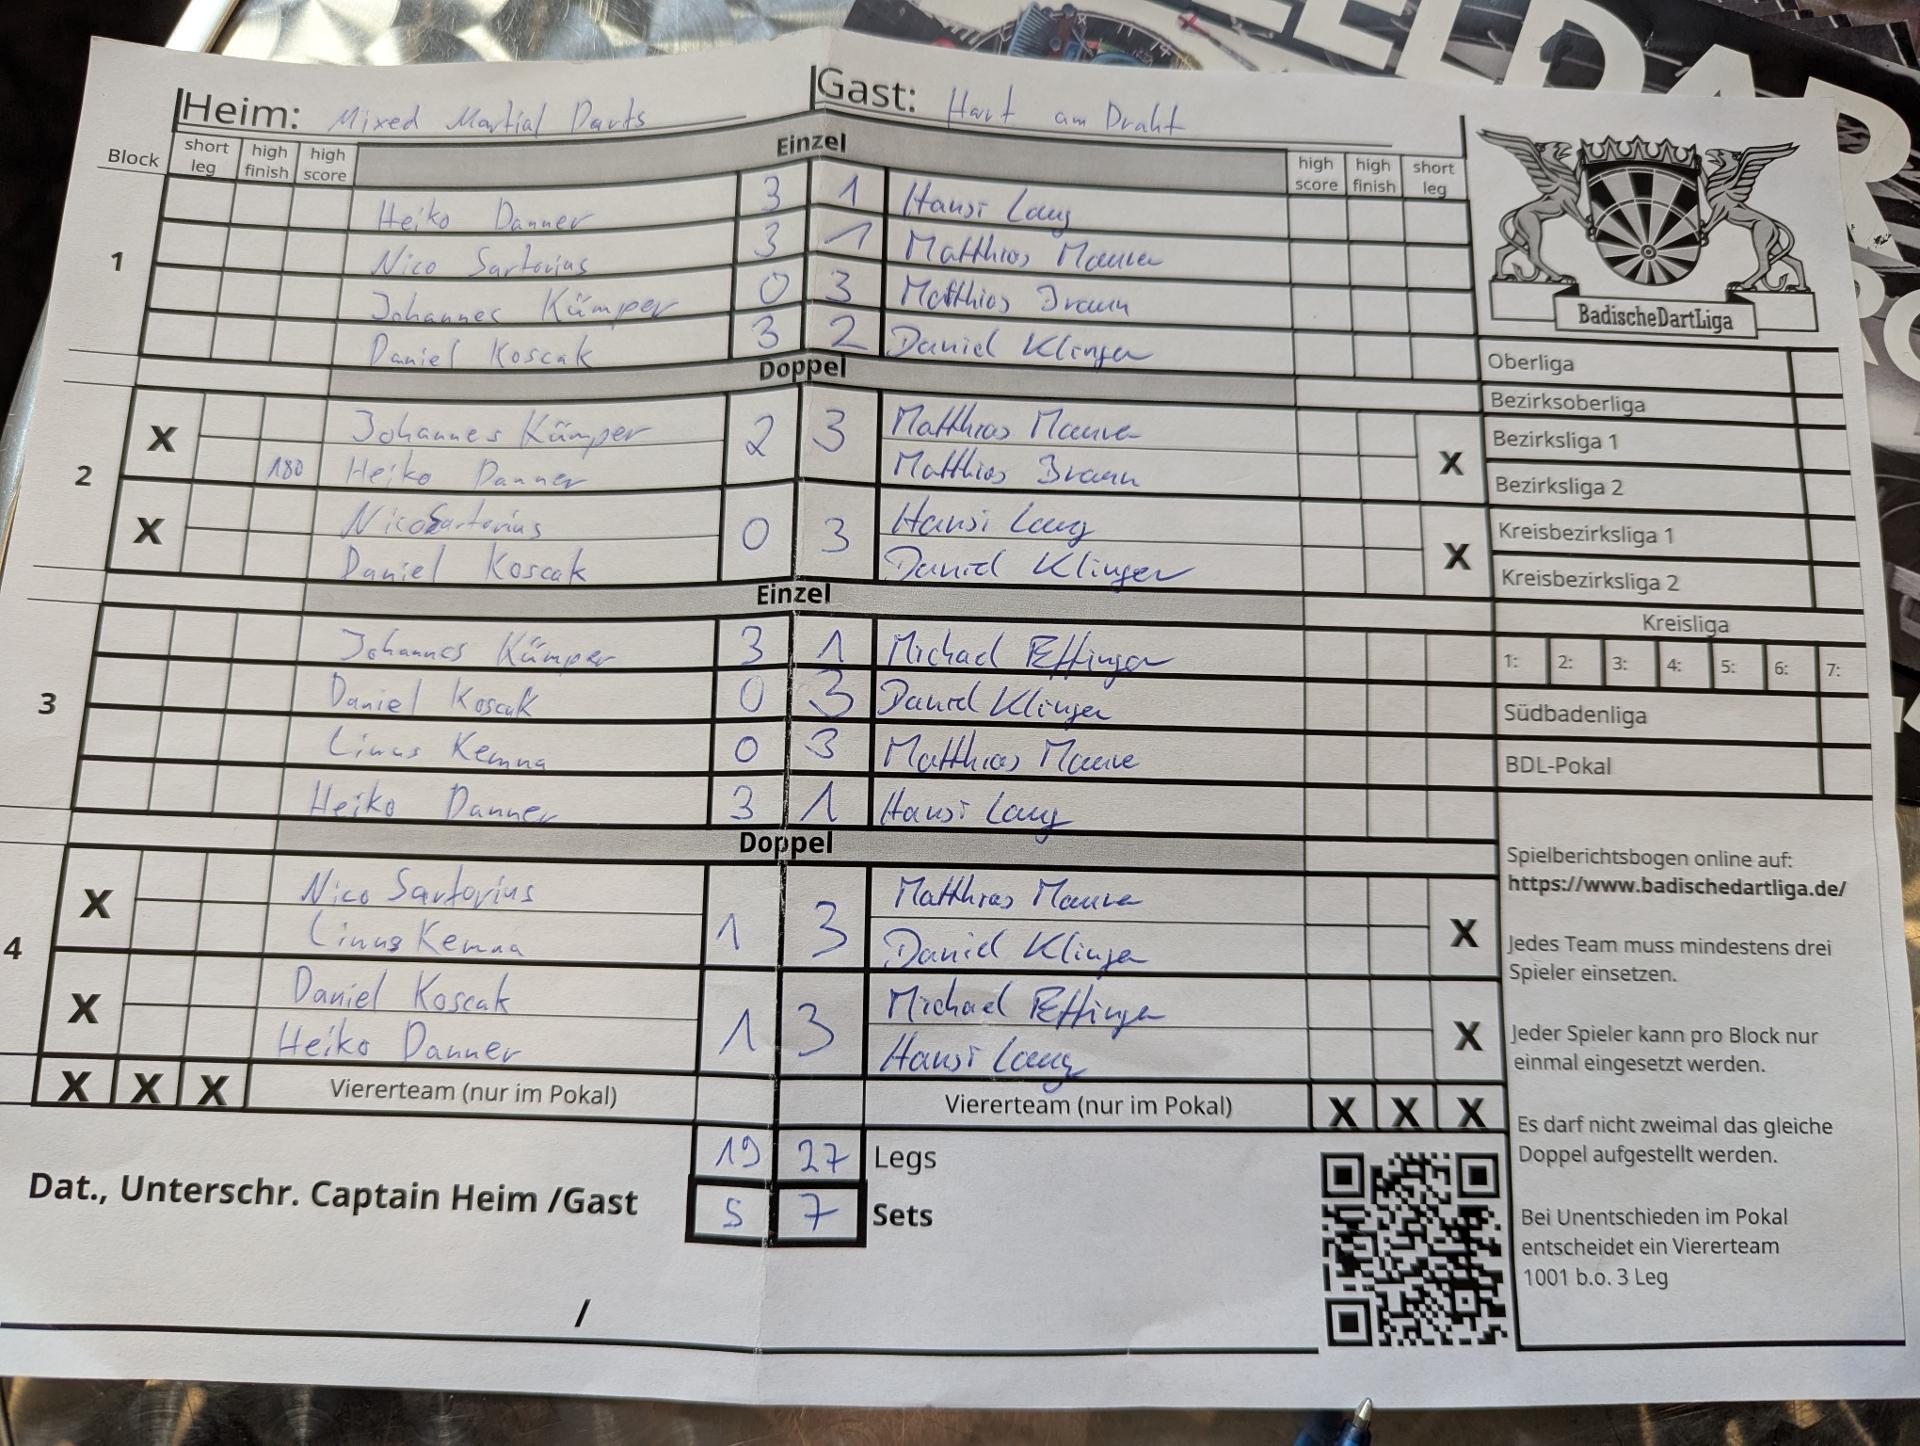 Heim: Mixed Martial Darts Gast: Hart am Draht
Block short leg high finish high score Einzel high score high finish short leg
1
Heiko Danner 3 1 Hansi Lang
Nico Sartorius 3 1 Matthias Maurer
Johannes Kümper 0 3 Matthias Braun
Daniel Koscak 3 2 Daniel Klinger
Doppel
2
X Johannes Kümper 2 3 Matthias Maurer X
180 Heiko Danner Matthias Braun
X Nico Sartorius 0 3 Hansi Lang X
Daniel Koscak Daniel Klinger
Einzel
3
Johannes Kümper 3 1 Michael Effinger
Daniel Koscak 0 3 Daniel Klinger
Linus Kemna 0 3 Matthias Maurer
Heiko Danner 3 1 Hansi Lang
Doppel
4
X Nico Sartorius 1 3 Matthias Maurer X
Linus Kemna Daniel Klinger
X Daniel Koscak 1 3 Michael Effinger X
Heiko Danner Hansi Lang
X X X Viererteam (nur im Pokal) Viererteam (nur im Pokal) X X X
19 27 Legs
5 7 Sets
Dat., Unterschr. Captain Heim /Gast
/
BadischeDartLiga
Oberliga
Bezirksoberliga
Bezirksliga 1
Bezirksliga 2
Kreisbezirksliga 1
Kreisbezirksliga 2
Kreisliga
1: 2: 3: 4: 5: 6: 7:
Südbadenliga
BDL-Pokal
Spielberichtsbogen online auf:
https://www.badischedartliga.de/
Jedes Team muss mindestens drei
Spieler einsetzen.
Jeder Spieler kann pro Block nur
einmal eingesetzt werden.
Es darf nicht zweimal das gleiche
Doppel aufgestellt werden.
Bei Unentschieden im Pokal
entscheidet ein Viererteam
1001 b.o. 3 Leg